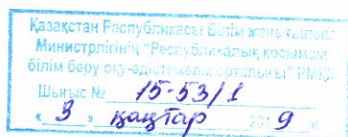 Қазақстан Республикасы Білім және ғылым
Министрлігінің "Республикалық қосымша
білім беру оқу-әдістемелік орталығы" РМҚК
Шығыс № 15-53/1
« 3 » қаңтар 2019 ж